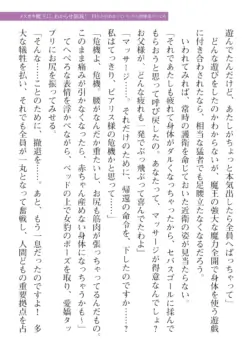 遊んでたんだけど、あたしがちょっと本気出したら全員へばっちゃって」
どんな遊びをしたのかわからないが、魔王の強大な魔力全開で身体を使う遊戯
に付き合わされたら、相当な猛者でも足腰立たなくなるだろう。
いわれてみれば、常時の護衛を命じておいた近衛たちの姿が見当たらない。
「もーあたしも疲れて身体がダルくっちゃって困ってたら、セバスゴールに預けて
お父様が呼び戻してって。あなたって、マッサージが得意なんでしょ？」
「マッサージ……それだけのために、帰還の命令を、下したのですか……
私はてっきり、ピアリス様の危機かと思って飛んで
「危機よ、危機。もうお尻と筋肉が張っちゃってるんだもの。
このまま痛みが引かなかったら、赤ちゃん産めない身体になっちゃうかも〜」
てへぺろな表情を作りながら、ベッドの上で女豹のポーズを取り、愛嬌タッ
プリにお尻を振ってみせる。
「そんな……ことのために、撤退を……あと、もう一息だったのですよ！　多
大な犠牲を払い、それでも全員が一丸となって奮戦し、人間どもの重要拠点を占